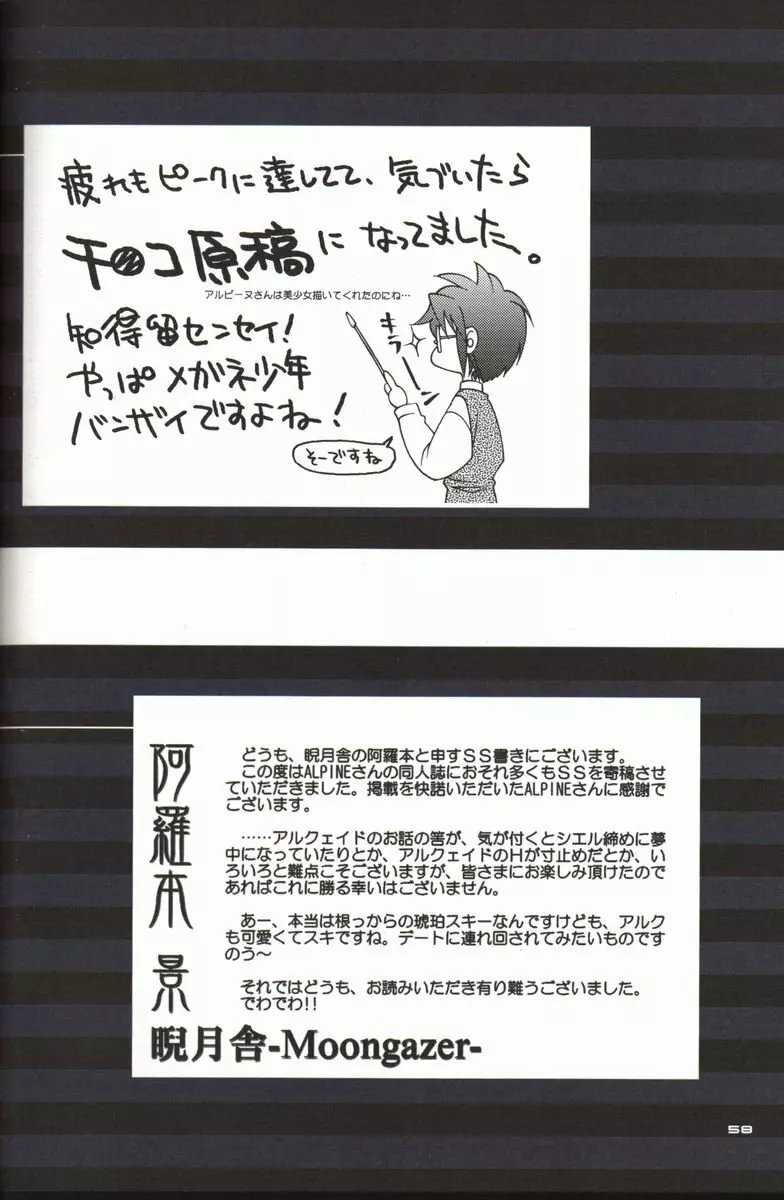 疲れもピークに達してて、気づいたら
チ〇コ原稿になってました、。
アルピーヌさんは美少女描いてくれたのにね…
知得留センセイ!
やっぱメガネ少年
バンザイですよね!
キラーン
そーですね
阿羅本 景
どうも、睨月舎の阿羅本と申すSS書きにございます。
この度はALPINEさんの同人誌におそれ多くもSSを寄稿させ
ていただきました。掲載を快諾いただいたALPINEさんに感謝で
ございます。
……アルクェイドのお話の筈が、気が付くとシエル締めに夢
中になっていたりとか、アルクェイドのHが寸止めだとか、い
ろいろと難点こそございますが、皆さまにお楽しみ頂けたので
あればこれに勝る幸いはございません。
あー、本当は根っからの琥珀スキーなんですけども、アルク
も可愛くてスキですね。デートに連れ回されてみたいものです
のう〜
それではどうも、お読みいただき有り難うございました。
でわでわ!!
睨月舎-Moongazer-
58